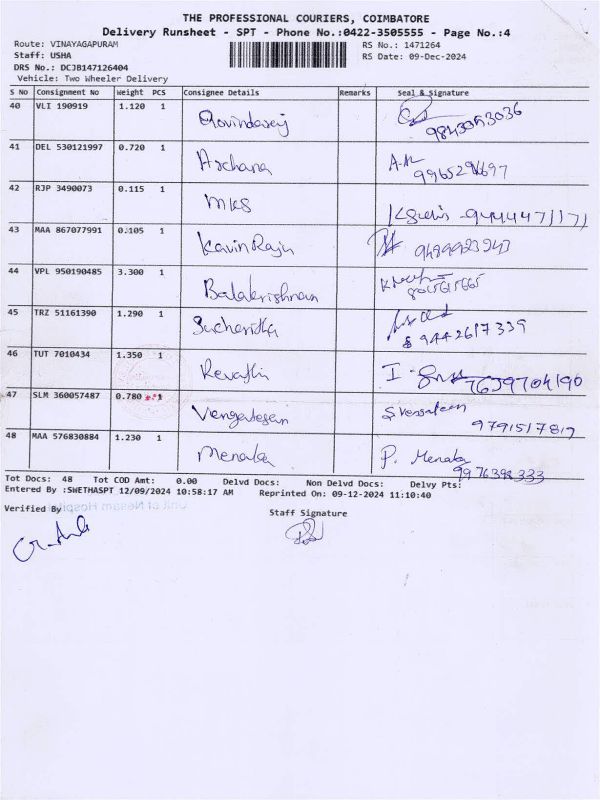 THE PROFESSIONAL COURIERS, COIMBATORE
Delivery Runsheet - SPT - Phone No.:0422-3505555 - Page No.:4
Route: VINAYAGAPURAM RS No.: 1471264
Staff: USHA RS Date: 09-Dec-2024
DRS No.: DCJB147126404
Vehicle: Two Wheeler Delivery
S No Consignment No Weight PCS Consignee Details Remarks Seal & Signature
40 VLI 190919 1.120 1 Govindaraj
41 DEL 530121997 0.720 1 Archana
42 RJP 3490073 0.115 1 MKS
43 MAA 867077991 0.105 1 KavinRaju
44 VPL 950190485 3.300 1 Balakrishnan
45 TRZ 51161390 1.290 1 Sucharitha 9442617339
46 TUT 7010434 1.350 1 Revathi 7639704190
47 SLM 360057487 0.780 1 Vengatesan 9791517817
48 MAA 576830884 1.230 1 Menaka P. Menaka
Tot Docs: 48 Tot COD Amt: 0.00 Delvd Docs: Non Delvd Docs: Delvy Pts:
Entered By :SWETHASPT 12/09/2024 10:58:17 AM Reprinted On: 09-12-2024 11:10:40
Verified By Staff Signature